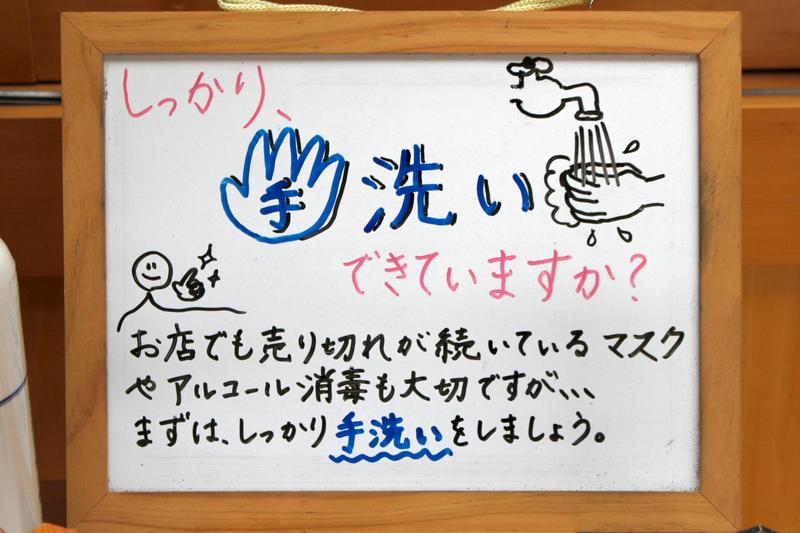 しっかり、
手洗い
できていますか?
お店でも売り切れが続いているマスク
やアルコール消毒も大切ですが、、、
まずは、しっかり手洗いをしましょう。